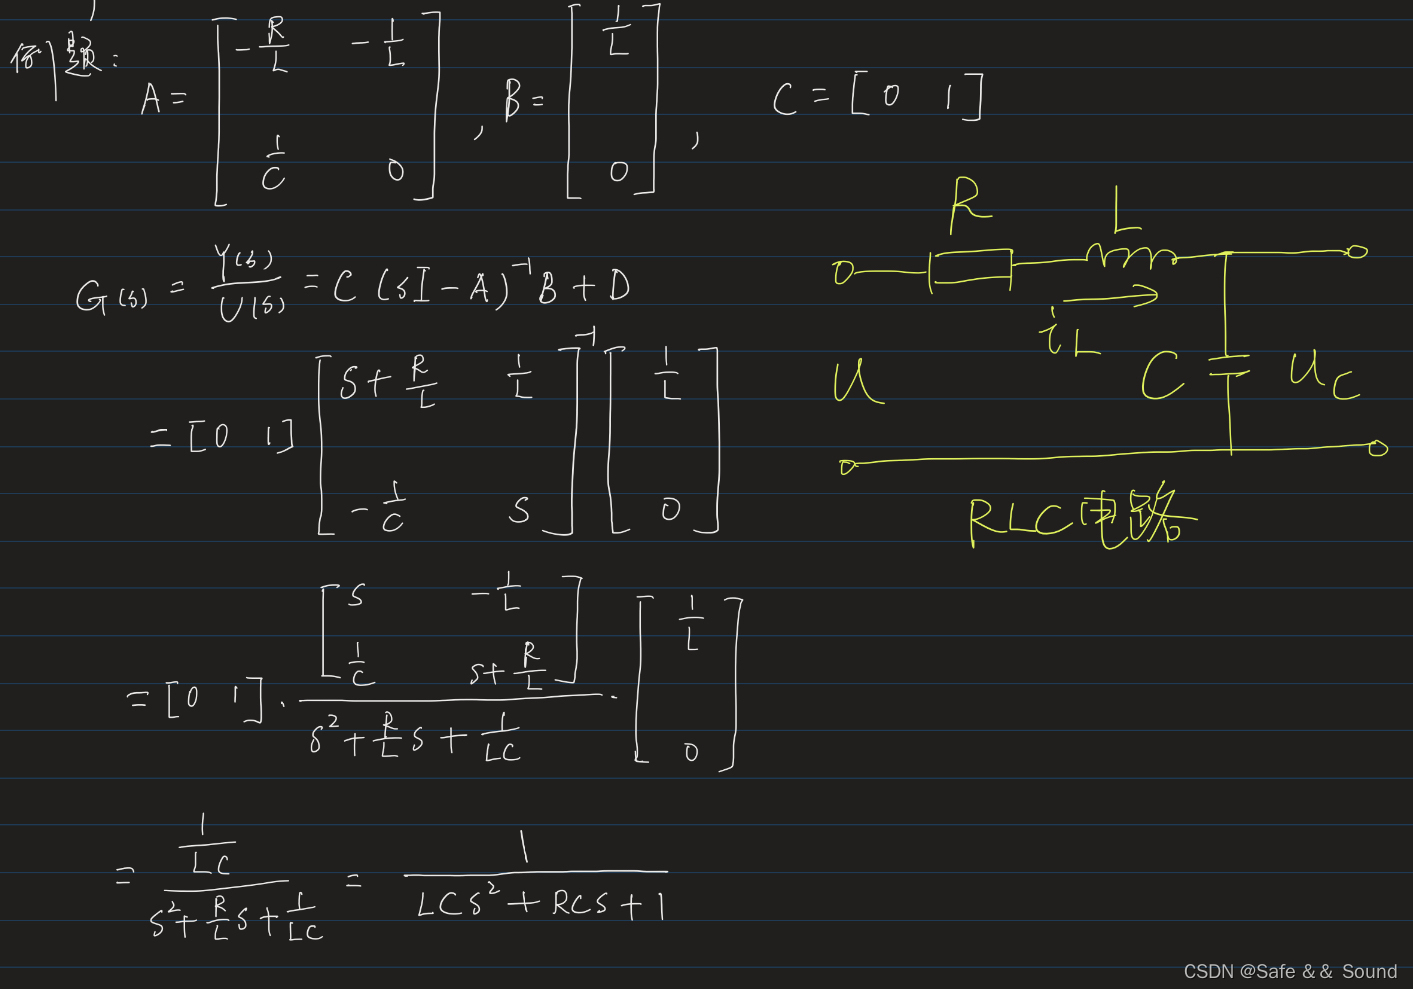 例题:
A = [ -R/L  -1/L ; 1/C  0 ] , B = [ 1/L ; 0 ] , C = [ 0  1 ]
G(s) = Y(s)/U(s) = C (sI - A)⁻¹ B + D
= [0  1] [ s + R/L  1/L ; -1/C  s ]⁻¹ [ 1/L ; 0 ]
= [0  1] · [ s  -1/L ; 1/C  s + R/L ] / (s² + R/L s + 1/LC) · [ 1/L ; 0 ]
= (1/LC) / (s² + R/L s + 1/LC) = 1 / (LCs² + RCs + 1)
R
L
i_L
u
C
u_c
RLC电路
CSDN @Safe && Sound